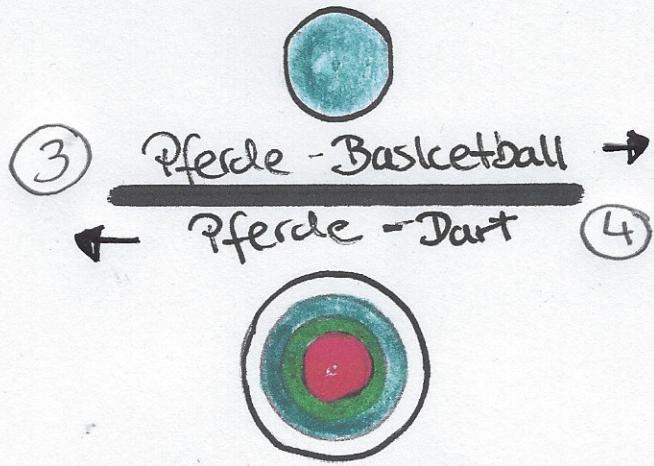 3 Pferde - Basketball →
← Pferde - Dart 4